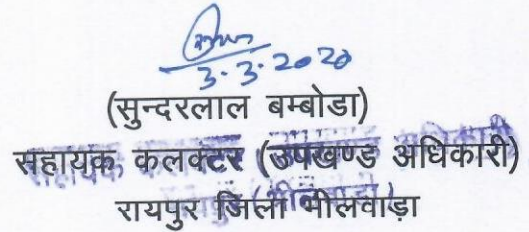 3.3.2020
(सुन्दरलाल बम्बोडा)
सहायक कलक्टर (उपखण्ड अधिकारी)
रायपुर जिला भीलवाड़ा